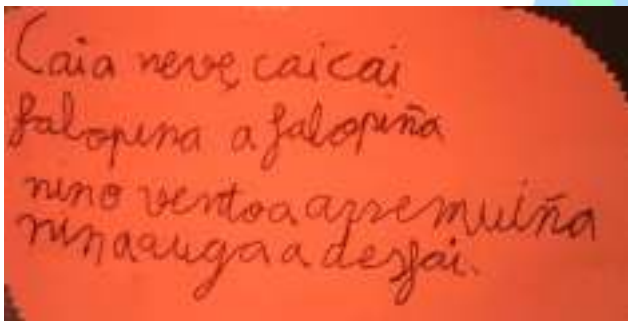 Caia neve, caicai
falopina a falopiña
nino ventoa arremuiña
ninaauga a desfai.